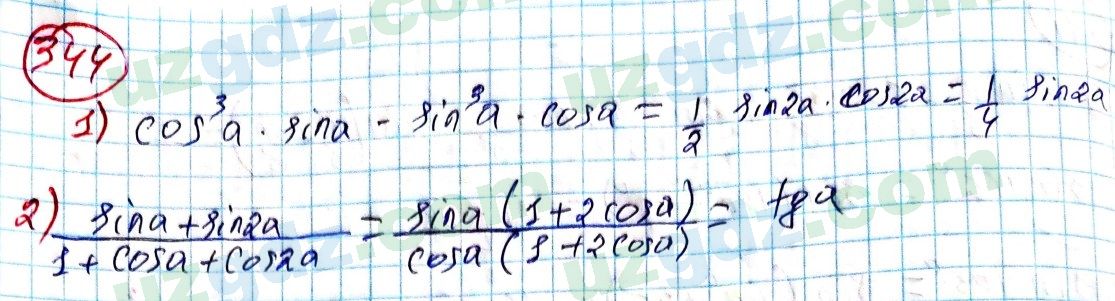 344
1) cos³a · sina - sin³a · cosa = 1/2 sin2a · cos2a = 1/4 sin2a
2) sina + sin2a / 1 + cosa + cos2a = sina (1 + 2cosa) / cosa (1 + 2cosa) = tga
uzgdz.com